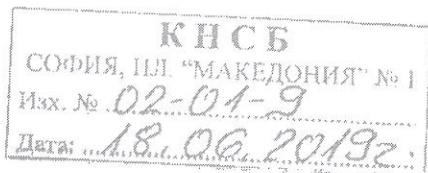 КНСБ
СОФИЯ, ПЛ. "МАКЕДОНИЯ" № 1
Изх. № 02-01-9
Дата: 18.06.2019г.